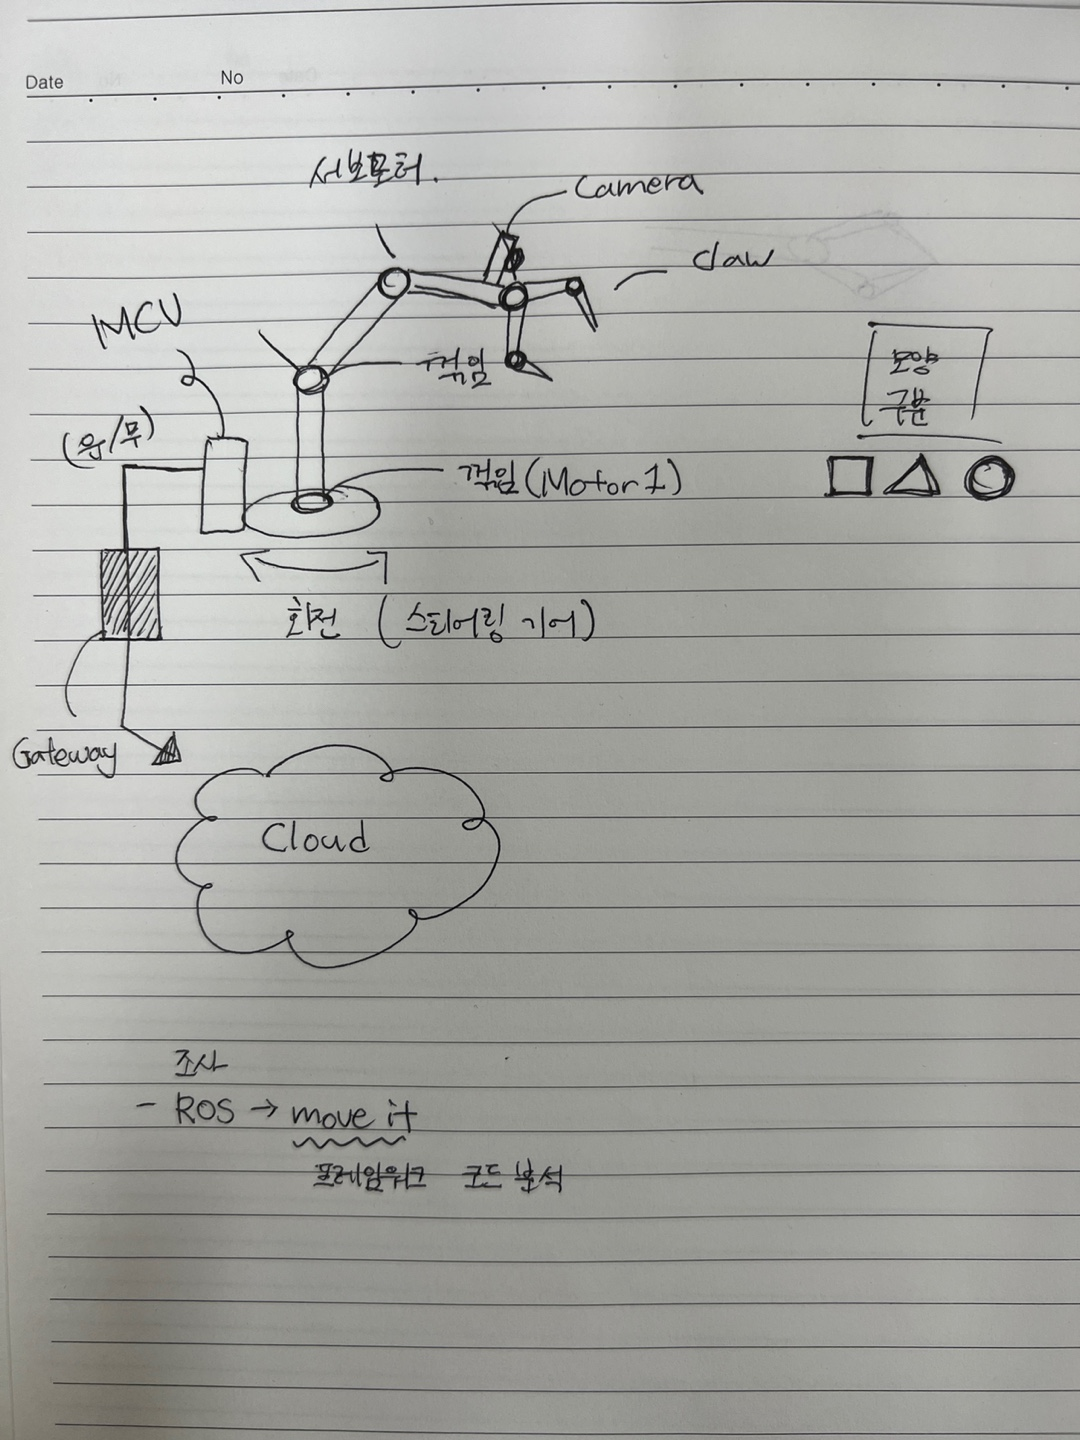 Date
No
서보모터.
Camera
claw
MCU
꺾임
모양
구분
(유/무)
꺾임 (Motor 1)
회전 (스티어링 기어)
Gateway
Cloud
조사
- ROS → move it
프레임워크 코드 분석